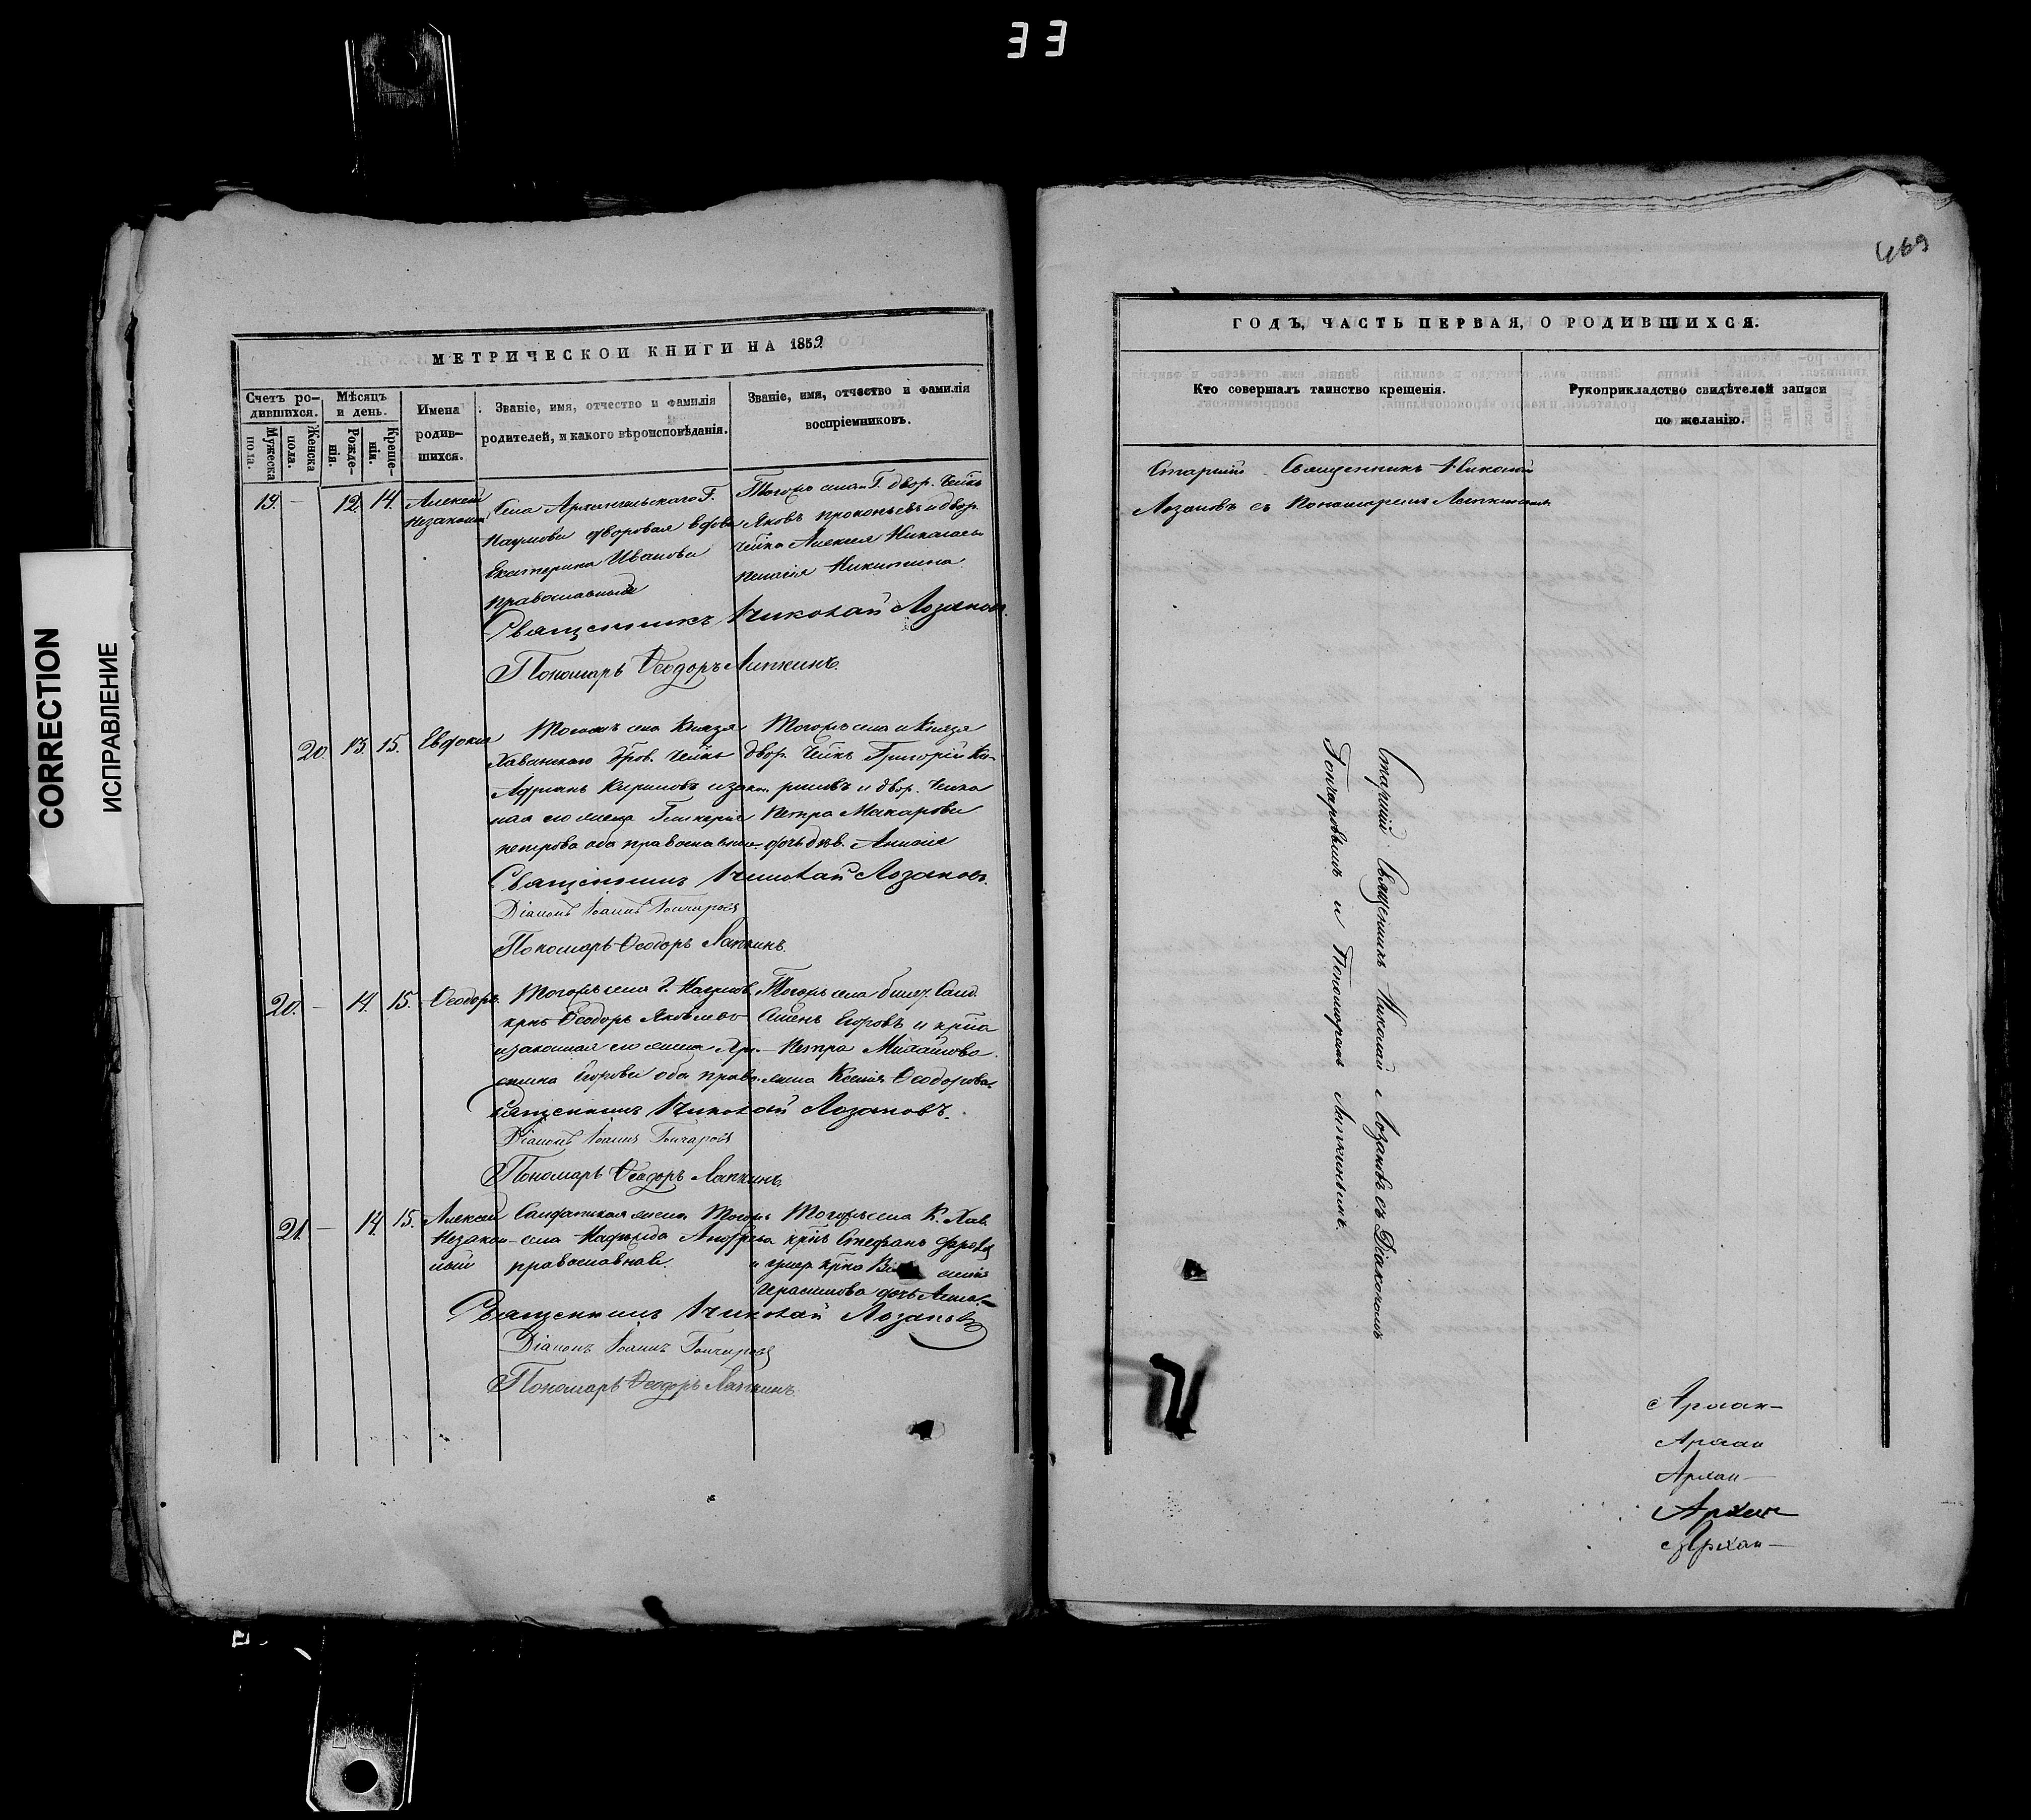 33
CORRECTION
ИСПРАВЛЕНИЕ
МЕТРИЧЕСКОЙ КНИГИ НА 1852
Счетъ ро-
дившихся.
Мужеска
пола.
Женска
пола.
Мѣсяцъ
и день.
Рожде-
нія.
Креще-
нія.
Имена
родив-
шихся.
Званіе, имя, отчество и фамилія
родителей, и какого вѣроисповѣданія.
Званіе, имя, отчество и фамилія
воспріемниковъ.
19. — 12 14.
Алексей
незаконн
Села Архангельскаго Г.
Наумова дворовая вдова
Екатерина Иванова
православная
Тогожъ села Г. двор. челкъ
Яковъ Прокопьевъ и двор.
челка Алексея Николаева
Никитина
Священникъ Николай Лозановъ.
Пономарь Ѳеодоръ Лапкинъ.
20. 13. 15.
Евдокия
Тогожъ села Князя
Хованскаго двор. челкъ
Адрианъ Кириловъ и закон
ная его жена Гликерия
Петрова оба православные
Тогожъ села и Князя
двор. челкъ Григорій Ки-
риловъ и двор. челка
Петра Макарова
дочь дев. Анисия
Священникъ Николай Лозановъ.
Діаконъ Іоаннъ Гончаровъ
Пономарь Ѳеодоръ Лапкинъ.
20. — 14. 15.
Ѳеодоръ.
Тогожъ села Г. Наумов.
крнъ Ѳеодоръ Яковлевъ
и законная его жена Хри-
стина Егорова оба право.
Тогожъ села билет. Солд.
Семенъ Егоровъ и крна
Петра Михайлова
жена Ксения Ѳеодорова
Священникъ Николай Лозановъ.
Діаконъ Іоаннъ Гончаровъ
Пономарь Ѳеодоръ Лапкинъ.
21. — 14. 15.
Алексей
Незакон-
ный
Солдатская жена Тогожъ
села Андреева
православная.
Тогожъ села К. Хов.
крнъ Стефанъ
и умер. крна
Герасимова дочь
Священникъ Николай Лозановъ
Діаконъ Іоаннъ Гончаровъ
Пономарь Ѳеодоръ Лапкинъ.
469
ГОДЪ, ЧАСТЬ ПЕРВАЯ, О РОДИВШИХСЯ.
Кто совершалъ таинство крещенія.
Рукоприкладство свидѣтелей записи
по желанію.
Старшій Священникъ Николай
Лозановъ съ Пономаремъ Лапкинымъ.
Старшій Священникъ Николай Лозановъ съ Діакономъ
Гончаровымъ и Пономаремъ Лапкинымъ.
Архан-
Архан
Архан-
Архан-
Архан-